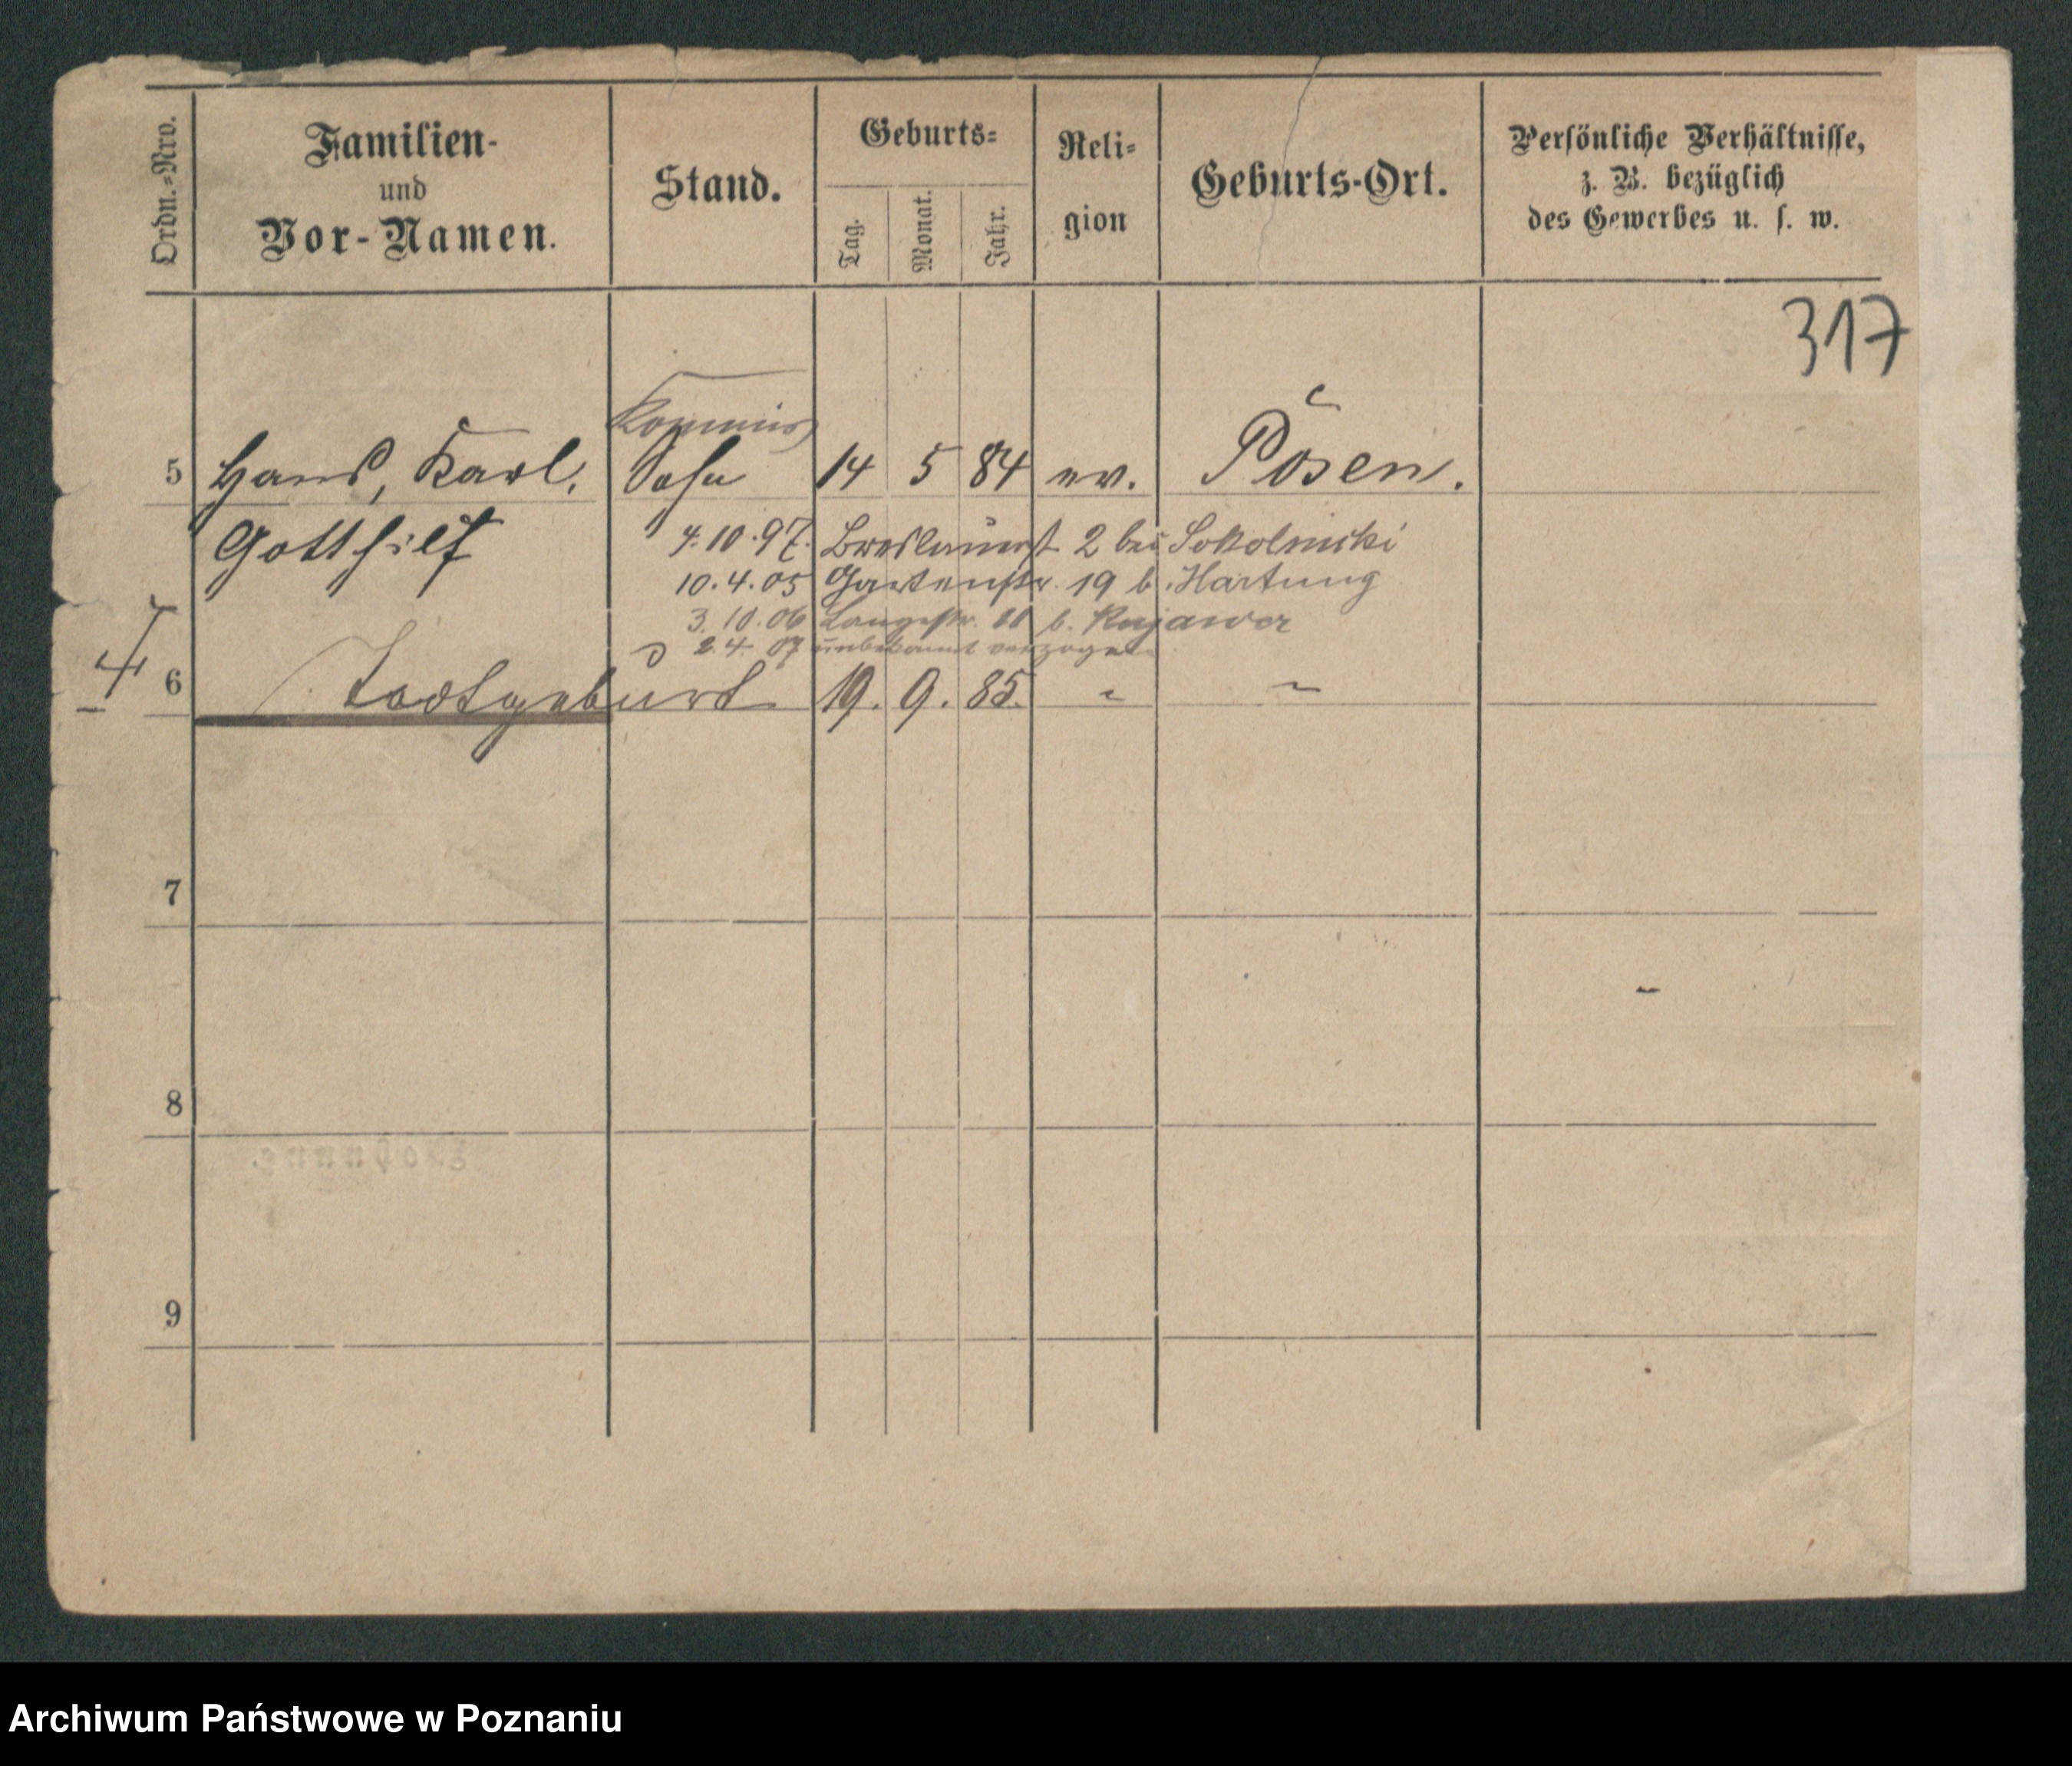 Ordn.-Nro.
Familien-
und
Vor-Namen.
Stand.
Geburts-
Tag.
Monat.
Jahr.
Reli-
gion
Geburts-Ort.
Persönliche Verhältnisse,
z. B. bezüglich
des Gewerbes u. s. w.
317
Kommis
5 Hans, Karl, Sohn 14 5 84 ev. Posen.
Gotthilf
4.10.97. Breslauerst 2 bei Sokolnicki
10.4.05 Gartenstr. 19 b. Hartung
3.10.06 Langestr. 11 b. Kujawer
2.4.07 unbekannt verzogen
6 Todtgeburt 19. 9. 85. " "
7
8
9
Archiwum Państwowe w Poznaniu